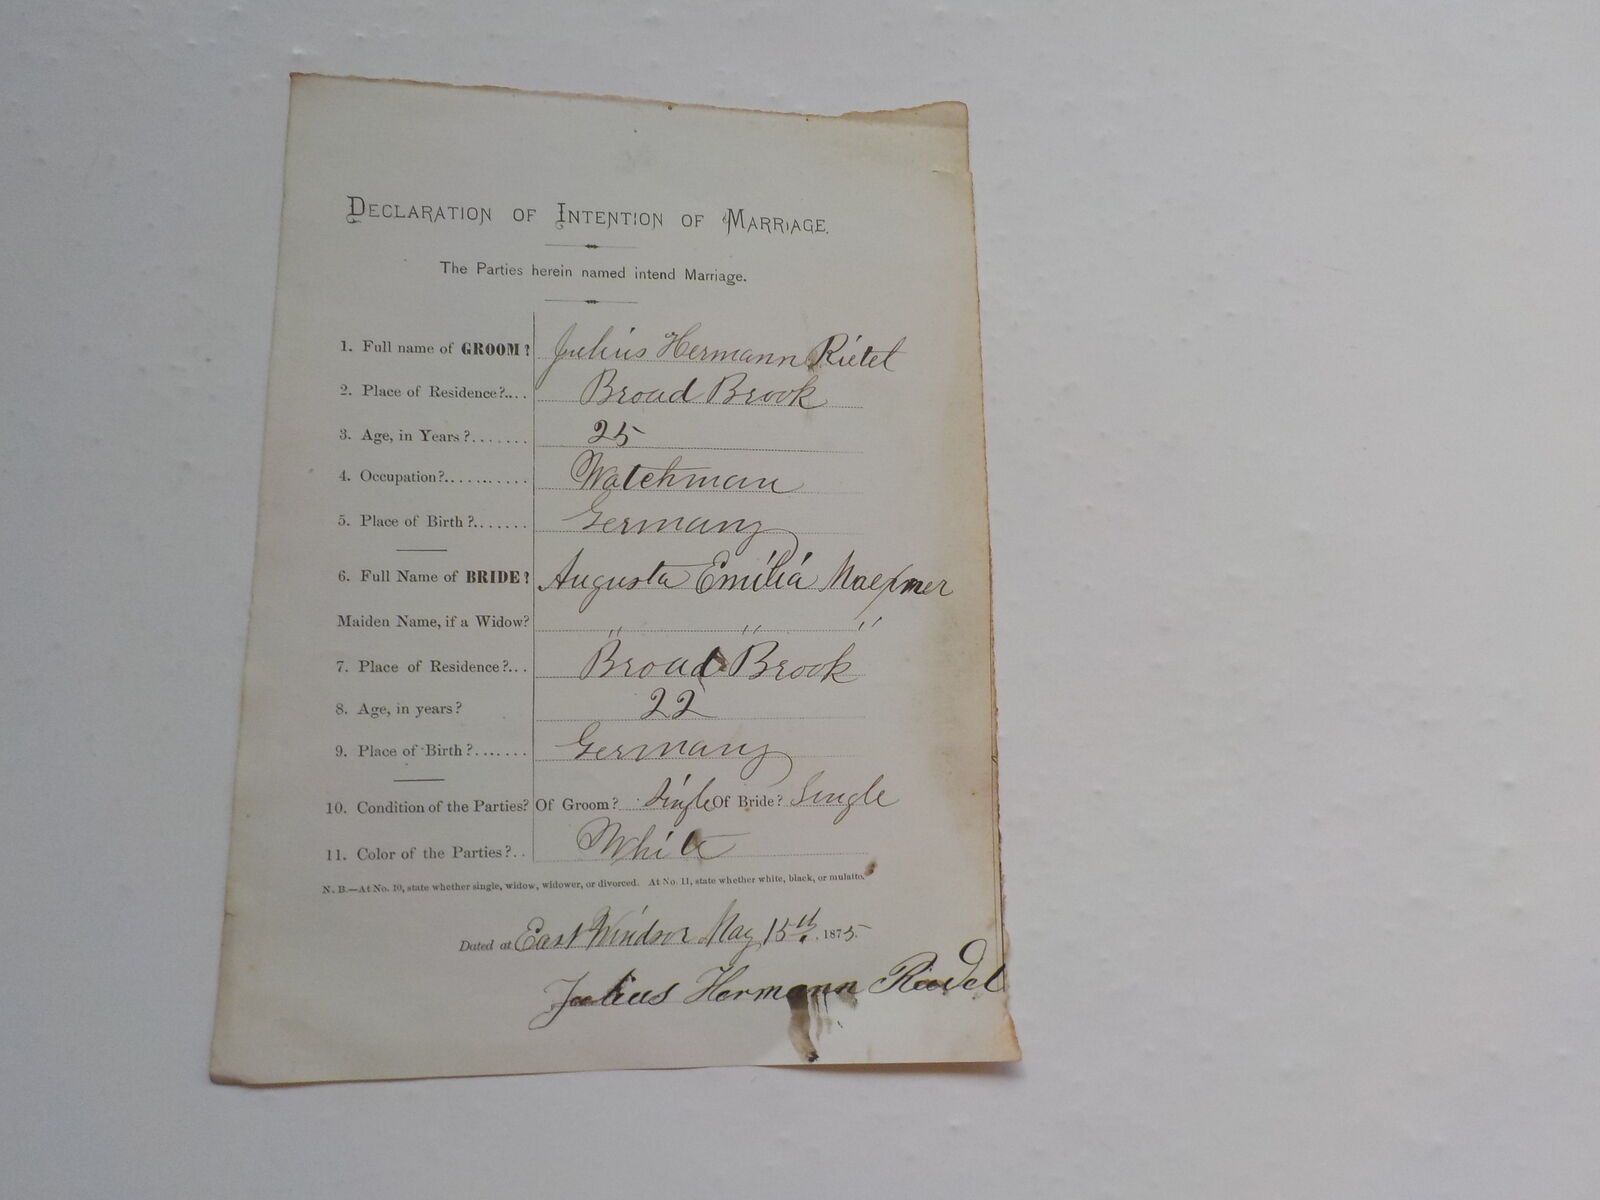 DECLARATION OF INTENTION OF MARRIAGE.
The Parties herein named intend Marriage.
1. Full name of GROOM? Julius Hermann Rietel
2. Place of Residence?.... Broad Brook
3. Age, in Years?....... 25
4. Occupation?.......... Watchman
5. Place of Birth?....... Germany
6. Full Name of BRIDE? Augusta Emilia
Maiden Name, if a Widow? " " "
7. Place of Residence?... Broad Brook
8. Age, in years? 22
9. Place of Birth?....... Germany
10. Condition of the Parties? Of Groom? Single Of Bride? Single
11. Color of the Parties?.. White
N. B.—At No. 10, state whether single, widow, widower, or divorced. At No. 11, state whether white, black, or mulatto.
Dated at East Windsor May 15th, 1875.
Julius Hermann Riedel